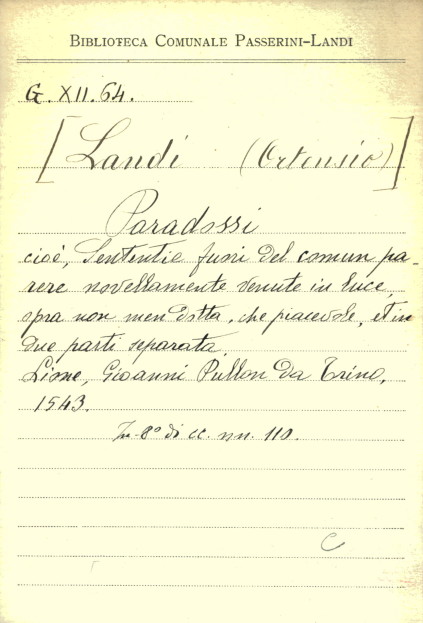 BIBLIOTECA COMUNALE PASSERINI-LANDI
G. XII. 64.
[Landi (Ortensio)]
Paradossi
cioè, Sententie fuori del comun pa-
rere novellamente venute in luce,
opra non men dotta, che piacevole, et in
due parti separata.
Lione, Gioanni Pullon da Trino,
1543.
In-8° di cc. nn. 110.
C